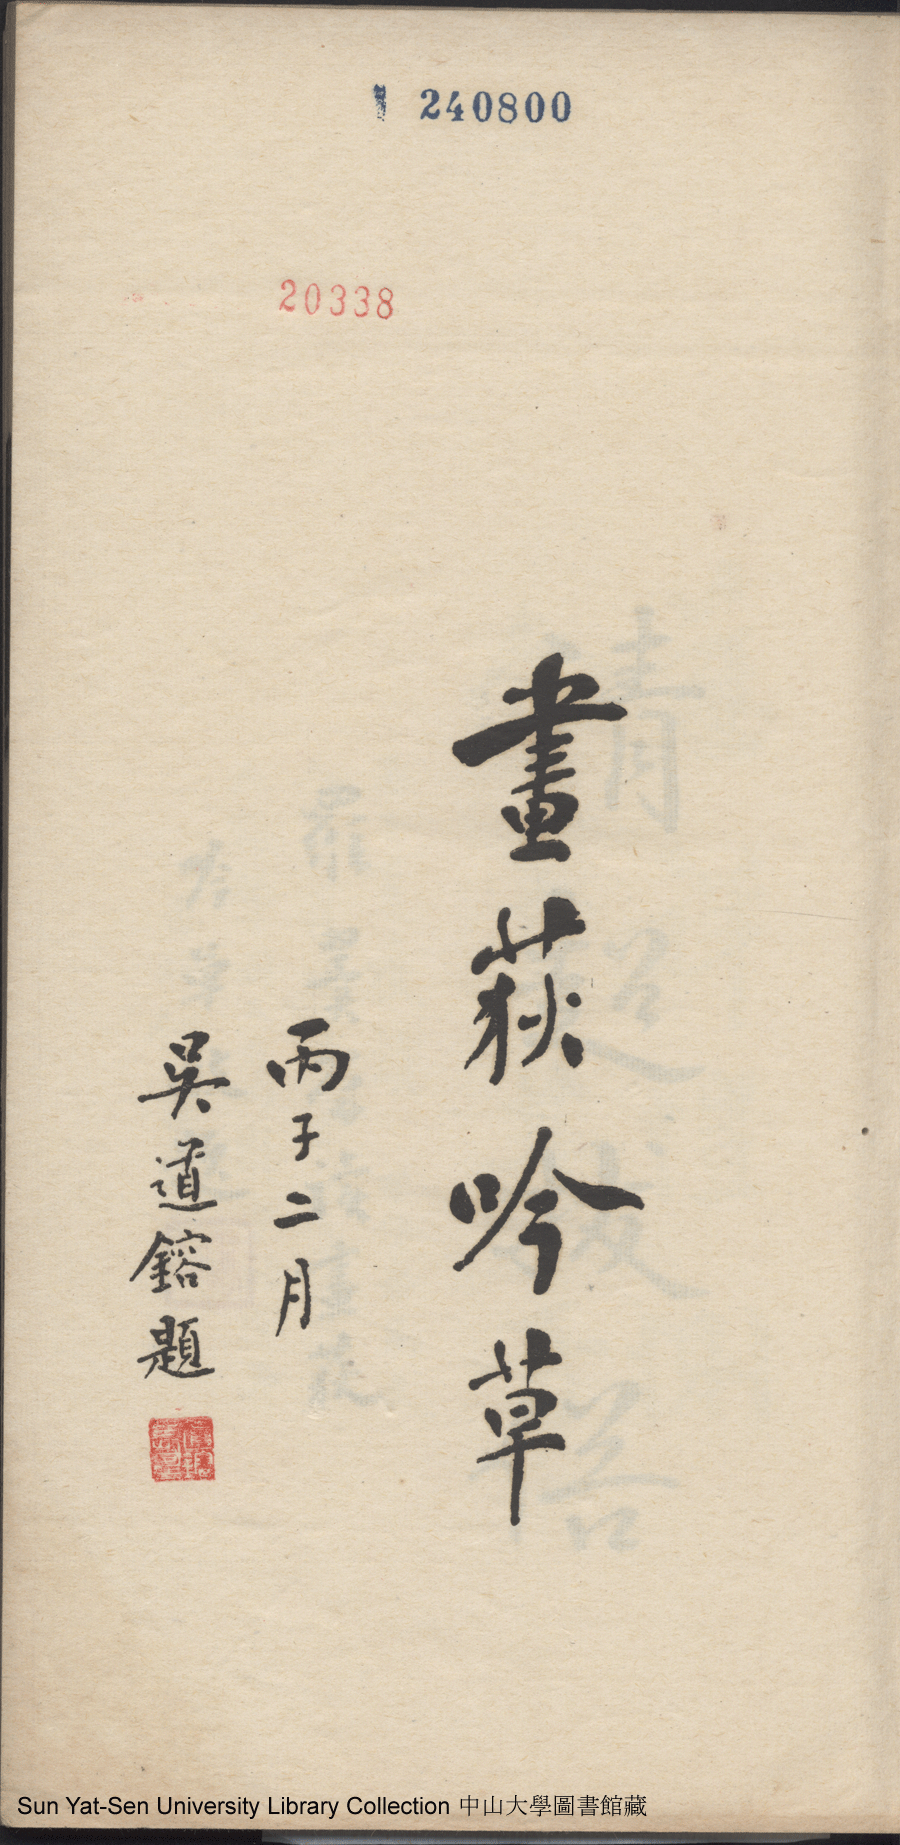 240800
20338
畫荻吟草
丙子二月
吳道鎔題
Sun Yat-Sen University Library Collection 中山大學圖書館藏